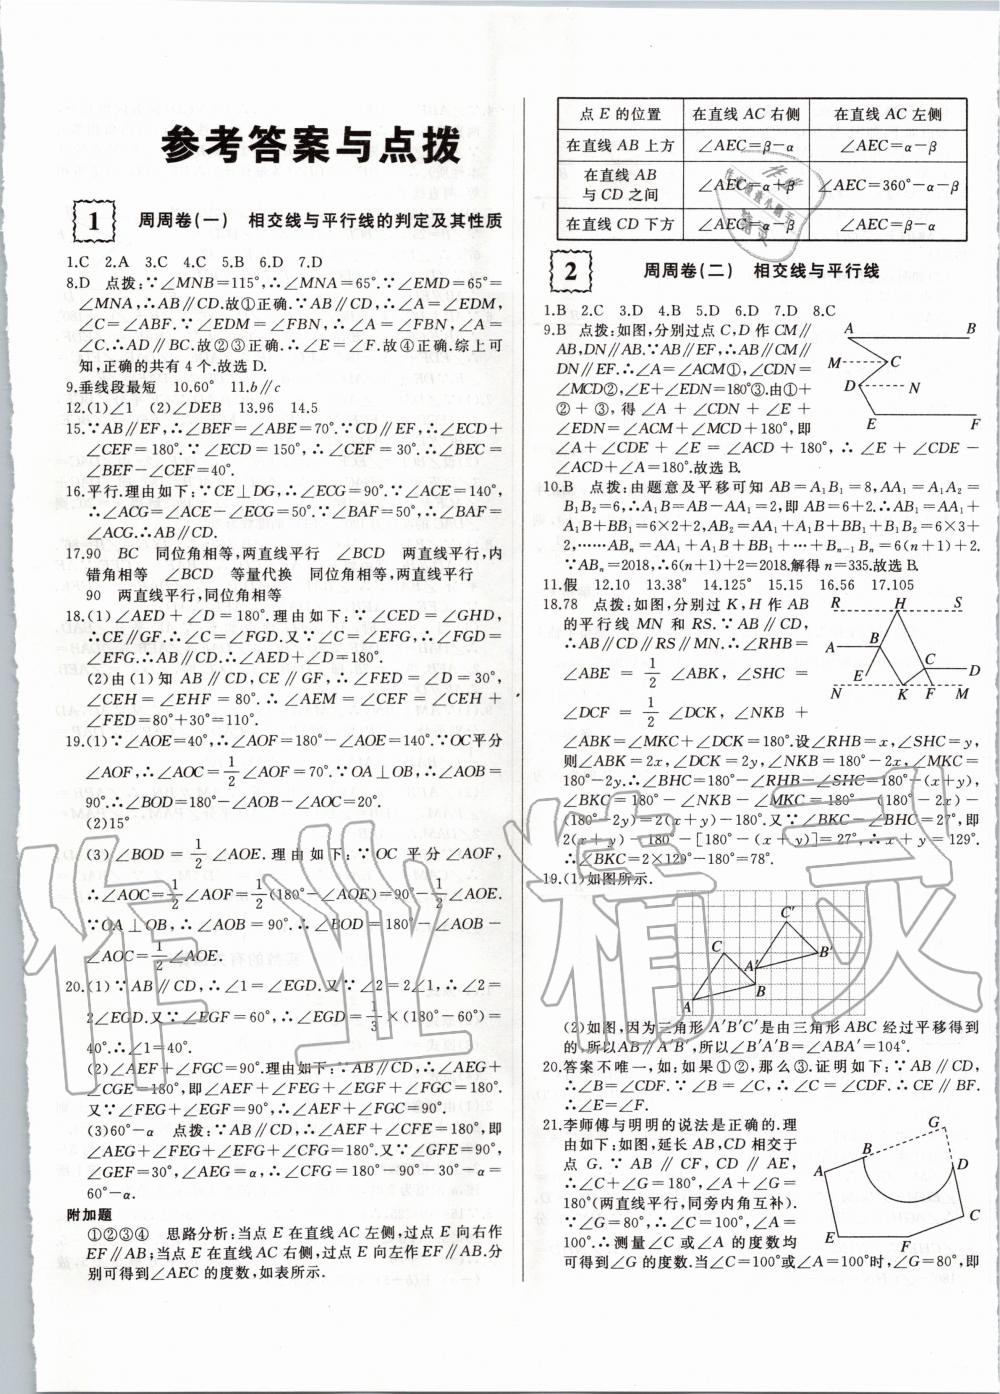 参考答案与点拨
1 周周卷(一) 相交线与平行线的判定及其性质
1.C 2.A 3.C 4.C 5.B 6.D 7.D
8.D 点拨:∵∠MNB=115°,∴∠MNA=65°.∵∠EMD=65°=
∠MNA,∴AB∥CD.故①正确.∵AB∥CD,∴∠A=∠EDM,
∠C=∠ABF.∵∠EDM=∠FBN,∴∠A=∠FBN,∠A=
∠C.∴AD∥BC.故②③正确.∴∠E=∠F.故④正确.综上可
知,正确的共有 4 个.故选 D.
9.垂线段最短 10.60° 11.b∥c
12.(1)∠1 (2)∠DEB 13.96 14.5
15.∵AB∥EF,∴∠BEF=∠ABE=70°.∵CD∥EF,∴∠ECD+
∠CEF=180°.∵∠ECD=150°,∴∠CEF=30°.∴∠BEC=
∠BEF-∠CEF=40°.
16.平行.理由如下:∵CE⊥DG,∴∠ECG=90°.∵∠ACE=140°,
∴∠ACG=∠ACE-∠ECG=50°.∵∠BAF=50°,∴∠BAF=
∠ACG.∴AB∥CD.
17.90 BC 同位角相等,两直线平行 ∠BCD 两直线平行,内
错角相等 ∠BCD 等量代换 同位角相等,两直线平行
90 两直线平行,同位角相等
18.(1)∠AED+∠D=180°.理由如下:∵∠CED=∠GHD,
∴CE∥GF.∴∠C=∠FGD.又∵∠C=∠EFG,∴∠FGD=
∠EFG.∴AB∥CD.∴∠AED+∠D=180°.
(2)由(1)知 AB∥CD,CE∥GF,∴∠FED=∠D=30°,
∠CEH=∠EHF=80°.∴∠AEM=∠CEF=∠CEH+
∠FED=80°+30°=110°.
19.(1)∵∠AOE=40°,∴∠AOF=180°-∠AOE=140°.∵OC平分
∠AOF,∴∠AOC=1/2∠AOF=70°.∵OA⊥OB,∴∠AOB=
90°.∴∠BOD=180°-∠AOB-∠AOC=20°.
(2)15°
(3)∠BOD=1/2∠AOE.理由如下:∵OC 平分∠AOF,
∴∠AOC=1/2∠AOF=1/2(180°-∠AOE)=90°-1/2∠AOE.
∵OA⊥OB,∴∠AOB=90°.∴∠BOD=180°-∠AOB-
∠AOC=1/2∠AOE.
20.(1)∵AB∥CD,∴∠1=∠EGD.又∵∠2=2∠1,∴∠2=
2∠EGD.又∵∠EGF=60°,∴∠EGD=1/3×(180°-60°)=
40°.∴∠1=40°.
(2)∠AEF+∠FGC=90°.理由如下:∵AB∥CD,∴∠AEG+
∠CGE=180°,即∠AEF+∠FEG+∠EGF+∠FGC=180°.
又∵∠FEG+∠EGF=90°,∴∠AEF+∠FGC=90°.
(3)60°-α 点拨:∵AB∥CD,∴∠AEF+∠CFE=180°,即
∠AEG+∠FEG+∠EFG+∠CFG=180°.又∵∠GFE=90°,
∠GEF=30°,∠AEG=α,∴∠CFG=180°-90°-30°-α=
60°-α.
附加题
①②③④ 思路分析:当点 E 在直线 AC 左侧,过点 E 向右作
EF∥AB;当点 E 在直线 AC 右侧,过点 E 向左作 EF∥AB.分
别可得到∠AEC 的度数,如表所示.
点 E 的位置 在直线 AC 右侧 在直线 AC 左侧
在直线 AB 上方 ∠AEC=β-α ∠AEC=α-β
在直线 AB 与 CD 之间 ∠AEC=α+β ∠AEC=360°-α-β
在直线 CD 下方 ∠AEC=α-β ∠AEC=β-α
2 周周卷(二) 相交线与平行线
1.B 2.C 3.D 4.B 5.D 6.D 7.D 8.C
9.B 点拨:如图,分别过点 C,D 作 CM∥
AB,DN∥AB.∵AB∥EF,∴AB∥CM∥
DN∥EF.∴∠A=∠ACM①,∠CDN=
∠MCD②,∠E+∠EDN=180°③.由①+
②+③,得∠A+∠CDN+∠E+
∠EDN=∠ACM+∠MCD+180°,即
∠A+∠CDE+∠E=∠ACD+180°,∴∠E+∠CDE-
∠ACD+∠A=180°.故选 B.
A B
M C
D N
E F
10.B 点拨:由题意及平移可知 AB=A₁B₁=8,AA₁=A₁A₂=
B₁B₂=6,∴A₁B=AB-AA₁=2,即 AB=6+2.∴AB₁=AA₁+
A₁B+BB₁=6×2+2,AB₂=AA₁+A₁B+BB₁+B₁B₂=6×3+
2,……ABₙ=AA₁+A₁B+BB₁+…+Bₙ₋₁Bₙ=6(n+1)+2.
∵ABₙ=2018,∴6(n+1)+2=2018.解得 n=335.故选 B.
11.假 12.10 13.38° 14.125° 15.15 16.56 17.105
18.78 点拨:如图,分别过 K,H 作 AB
的平行线 MN 和 RS.∵AB∥CD,
∴AB∥CD∥RS∥MN.∴∠RHB=
∠ABE=1/2∠ABK,∠SHC=
∠DCF=1/2∠DCK,∠NKB+
∠ABK=∠MKC+∠DCK=180°.设∠RHB=x,∠SHC=y,
则∠ABK=2x,∠DCK=2y,∠NKB=180°-2x,∠MKC=
180°-2y.∴∠BHC=180°-∠RHB-∠SHC=180°-(x+y),
∠BKC=180°-∠NKB-∠MKC=180°-(180°-2x)-
(180°-2y)=2(x+y)-180°.又∵∠BKC-∠BHC=27°,即
2(x+y)-180°-[180°-(x+y)]=27°,∴x+y=129°.
∴∠BKC=2×129°-180°=78°.
R H S
A B
C D
E
N K F M
19.(1)如图所示.
C'
C
A' B'
A B
(2)如图,因为三角形 A'B'C'是由三角形 ABC 经过平移得到
的,所以AB∥A'B',所以∠B'A'B=∠ABA'=104°.
20.答案不唯一,如:如果①②,那么③.证明如下:∵AB∥CD,
∴∠B=∠CDF.∵∠B=∠C,∴∠C=∠CDF.∴CE∥BF.
∴∠E=∠F.
21.李师傅与明明的说法是正确的.理
由如下:如图,延长 AB,CD 相交于
点 G.∵AB∥CF,CD∥AE,
∴∠C+∠G=180°,∠A+∠G=
180°(两直线平行,同旁内角互补).
∵∠G=80°,∴∠C=100°,∠A=
100°.∴测量∠C 或∠A 的度数均
可得到∠G 的度数.当∠C=100°或∠A=100°时,∠G=80°,即
G
B
A D
C
E F
作业精灵